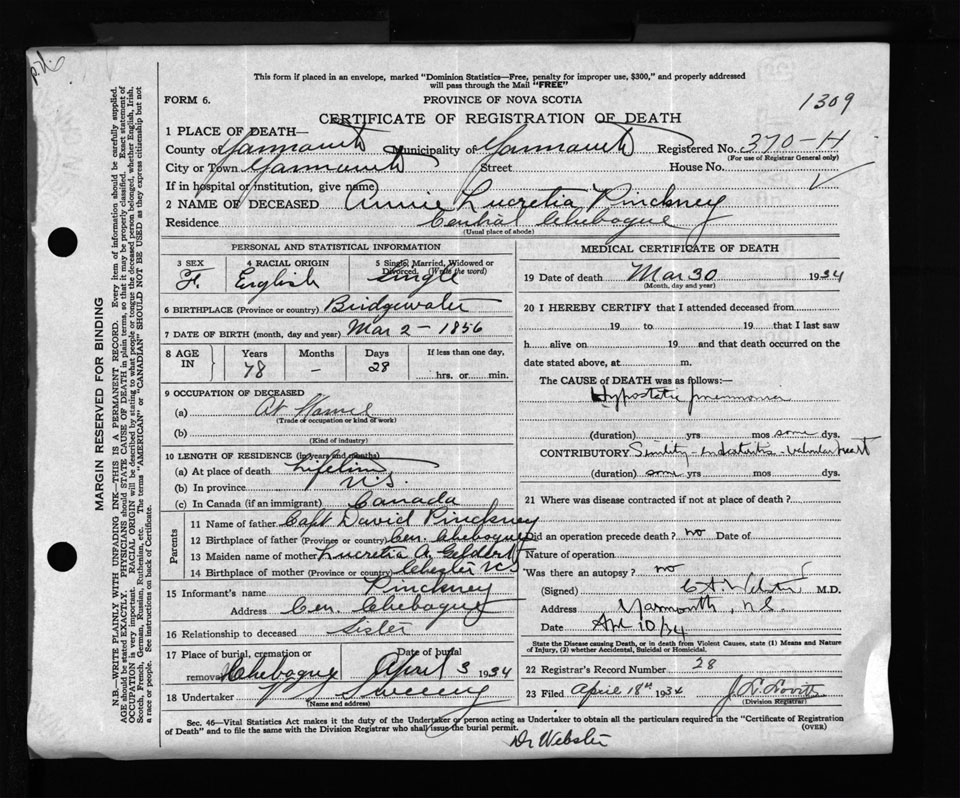 This form if placed in an envelope, marked "Dominion Statistics—Free, penalty for improper use, $300," and properly addressed
will pass through the Mail "FREE"
FORM 6.
PROVINCE OF NOVA SCOTIA
1309
CERTIFICATE OF REGISTRATION OF DEATH
1 PLACE OF DEATH—
County of Yarmouth Municipality of Yarmouth Registered No. 370-H
(For use of Registrar General only)
City or Town Yarmouth Street House No.
If in hospital or institution, give name)
2 NAME OF DECEASED Annie Lucretia Pinckney
Residence Central Chebogue
(Usual place of abode)
PERSONAL AND STATISTICAL INFORMATION
3 SEX 4 RACIAL ORIGIN 5 Single, Married, Widowed or
Divorced. (Write the word)
F. English Single
6 BIRTHPLACE (Province or country) Bridgewater
7 DATE OF BIRTH (month, day and year) Mar 2 - 1856
8 AGE IN Years Months Days If less than one day,
78 - 28 hrs. or min.
9 OCCUPATION OF DECEASED
(a) At Home
(Trade or occupation or kind of work)
(b)
(Kind of industry)
10 LENGTH OF RESIDENCE (in years and months)
(a) At place of death Lifetime
(b) In province N.S.
(c) In Canada (if an immigrant) Canada
Parents
11 Name of father Capt David Pinckney
12 Birthplace of father (Province or country) Cen. Chebogue
13 Maiden name of mother Lucretia A. Geldert
14 Birthplace of mother (Province or country) Chester N.S.
15 Informant's name Pinckney
Address Cen. Chebogue
16 Relationship to deceased Sister
17 Place of burial, cremation or Date of burial
removal Chebogue April 3 1934
18 Undertaker Sweeny
(Name and address)
MEDICAL CERTIFICATE OF DEATH
19 Date of death Mar 30 1934
(Month, day and year)
20 I HEREBY CERTIFY that I attended deceased from
19 to 19 that I last saw
h alive on 19 and that death occurred on the
date stated above, at m.
The CAUSE of DEATH was as follows:—
Hypostatic pneumonia
(duration) yrs mos some dys.
CONTRIBUTORY Senility - - Valvular heart
(duration) some yrs mos dys.
21 Where was disease contracted if not at place of death?
Did an operation precede death? no Date of
Nature of operation
Was there an autopsy? no
(Signed) C.A. Webster M.D.
Address Yarmouth, N.S.
Date Apr 10/34
State the Disease causing Death, or in death from Violent Causes, state (1) Means and Nature
of Injury, (2) whether Accidental, Suicidal or Homicidal.
22 Registrar's Record Number 28
23 Filed April 18th 1934 J. L. Lovitt
(Division Registrar)
Sec. 46—Vital Statistics Act makes it the duty of the Undertaker or person acting as Undertaker to obtain all the particulars required in the "Certificate of Registration
of Death" and to file the same with the Division Registrar who shall issue the burial permit.
(OVER)
Dr Webster
MARGIN RESERVED FOR BINDING
N.B.—WRITE PLAINLY WITH UNFADING INK—THIS IS A PERMANENT RECORD. Every item of information should be carefully supplied.
AGE should be stated EXACTLY. PHYSICIANS should STATE CAUSE OF DEATH in plain terms, so that it may be properly classified. Exact statement of
OCCUPATION is very important. RACIAL ORIGIN will be described by stating to what people or tongue the deceased person belonged, whether English, Irish,
Scotch, French, German, Russian, Ruthenian, etc. The terms "AMERICAN" or "CANADIAN" SHOULD NOT BE USED as they express citizenship but not
a race or people. See instructions on back of Certificate.